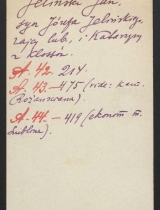 Jeliński Jan,
syn Józefa Jelińskiego,
rajcy lub. i Katarzyny
z Klossów.
A. 42. 214.
A. 43. - 475 (vide: kam.
Rożanowana).
A. 44. - 419 (ekonom m.
Lublina).